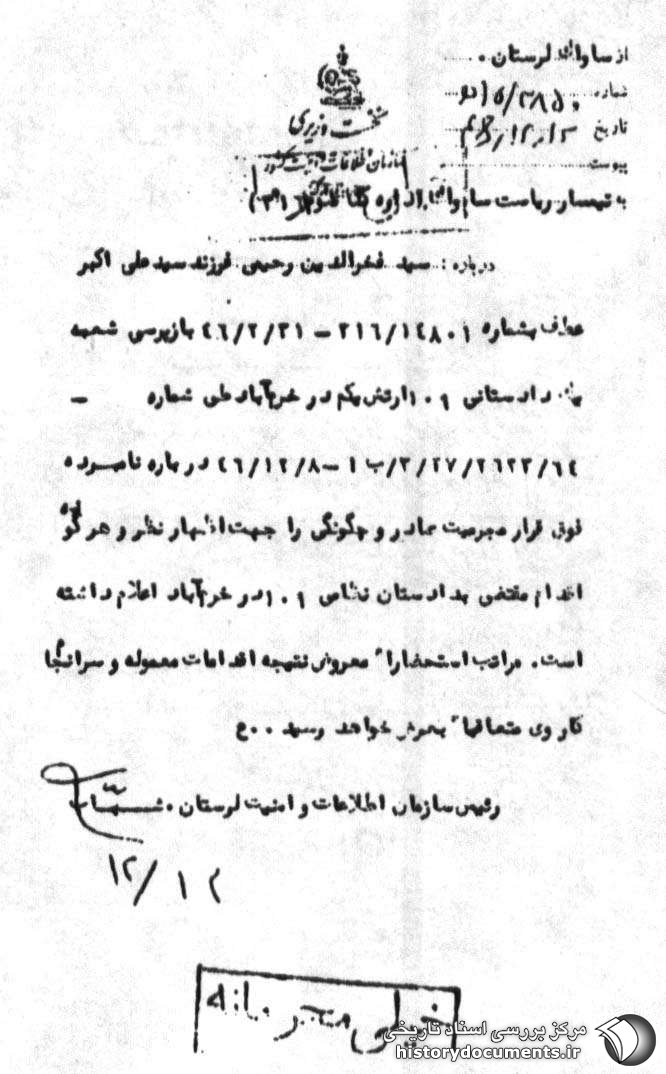 از ساواک لرستان .
شماره ۳۸۵۰/۵
تاریخ ۱۲/۱۲
پیوست
نخست وزیری
سازمان اطلاعات و امنیت کشور
به تیمسار ریاست ساواک اداره کل سوم (۳۱۶)
درباره : سید فخرالدین رحیمی فرزند سیدعلی اکبر
عطف بشماره ۳۱۶/۱۴۸۰۱ – ۴۶/۲/۳۱ بازپرسی شعبه
دادستانی ۱۰۹ ارتش یکم در خرم‌آباد طی شماره –
۶۴/۲۶۲۳/۲۷/۳/ب ۱ – ۴۶/۱۲/۸ درباره نامبرده
فوق قرار مجرمیت صادر و چگونگی را جهت اظهار نظر و هر گونه
اقدام مقتضی بدادستان نظامی ۱۰۹ در خرم‌آباد اعلام داشته
است . مراتب استحضاراً معروض نتیجه اقدامات معموله و سرانجام
کار وی متعاقباً بعرض خواهد رسید . . ع
رئیس سازمان اطلاعات و امنیت لرستان . شهاب
۱۲/۱۲
خیلی محرمانه
مرکز بررسی اسناد تاریخی
historydocuments.ir